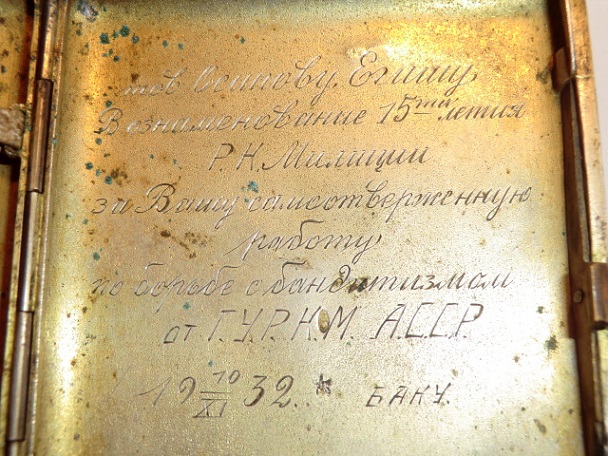 тов Осипову, Егишу,
В ознаменование 15тии летия
Р.К.Милиции
за Вашу самоотверженную
работу
по борьбе с бандитизмом
от Г.У.Р.К.М. А.С.С.Р.
19 10/XI 32. * БАКУ.